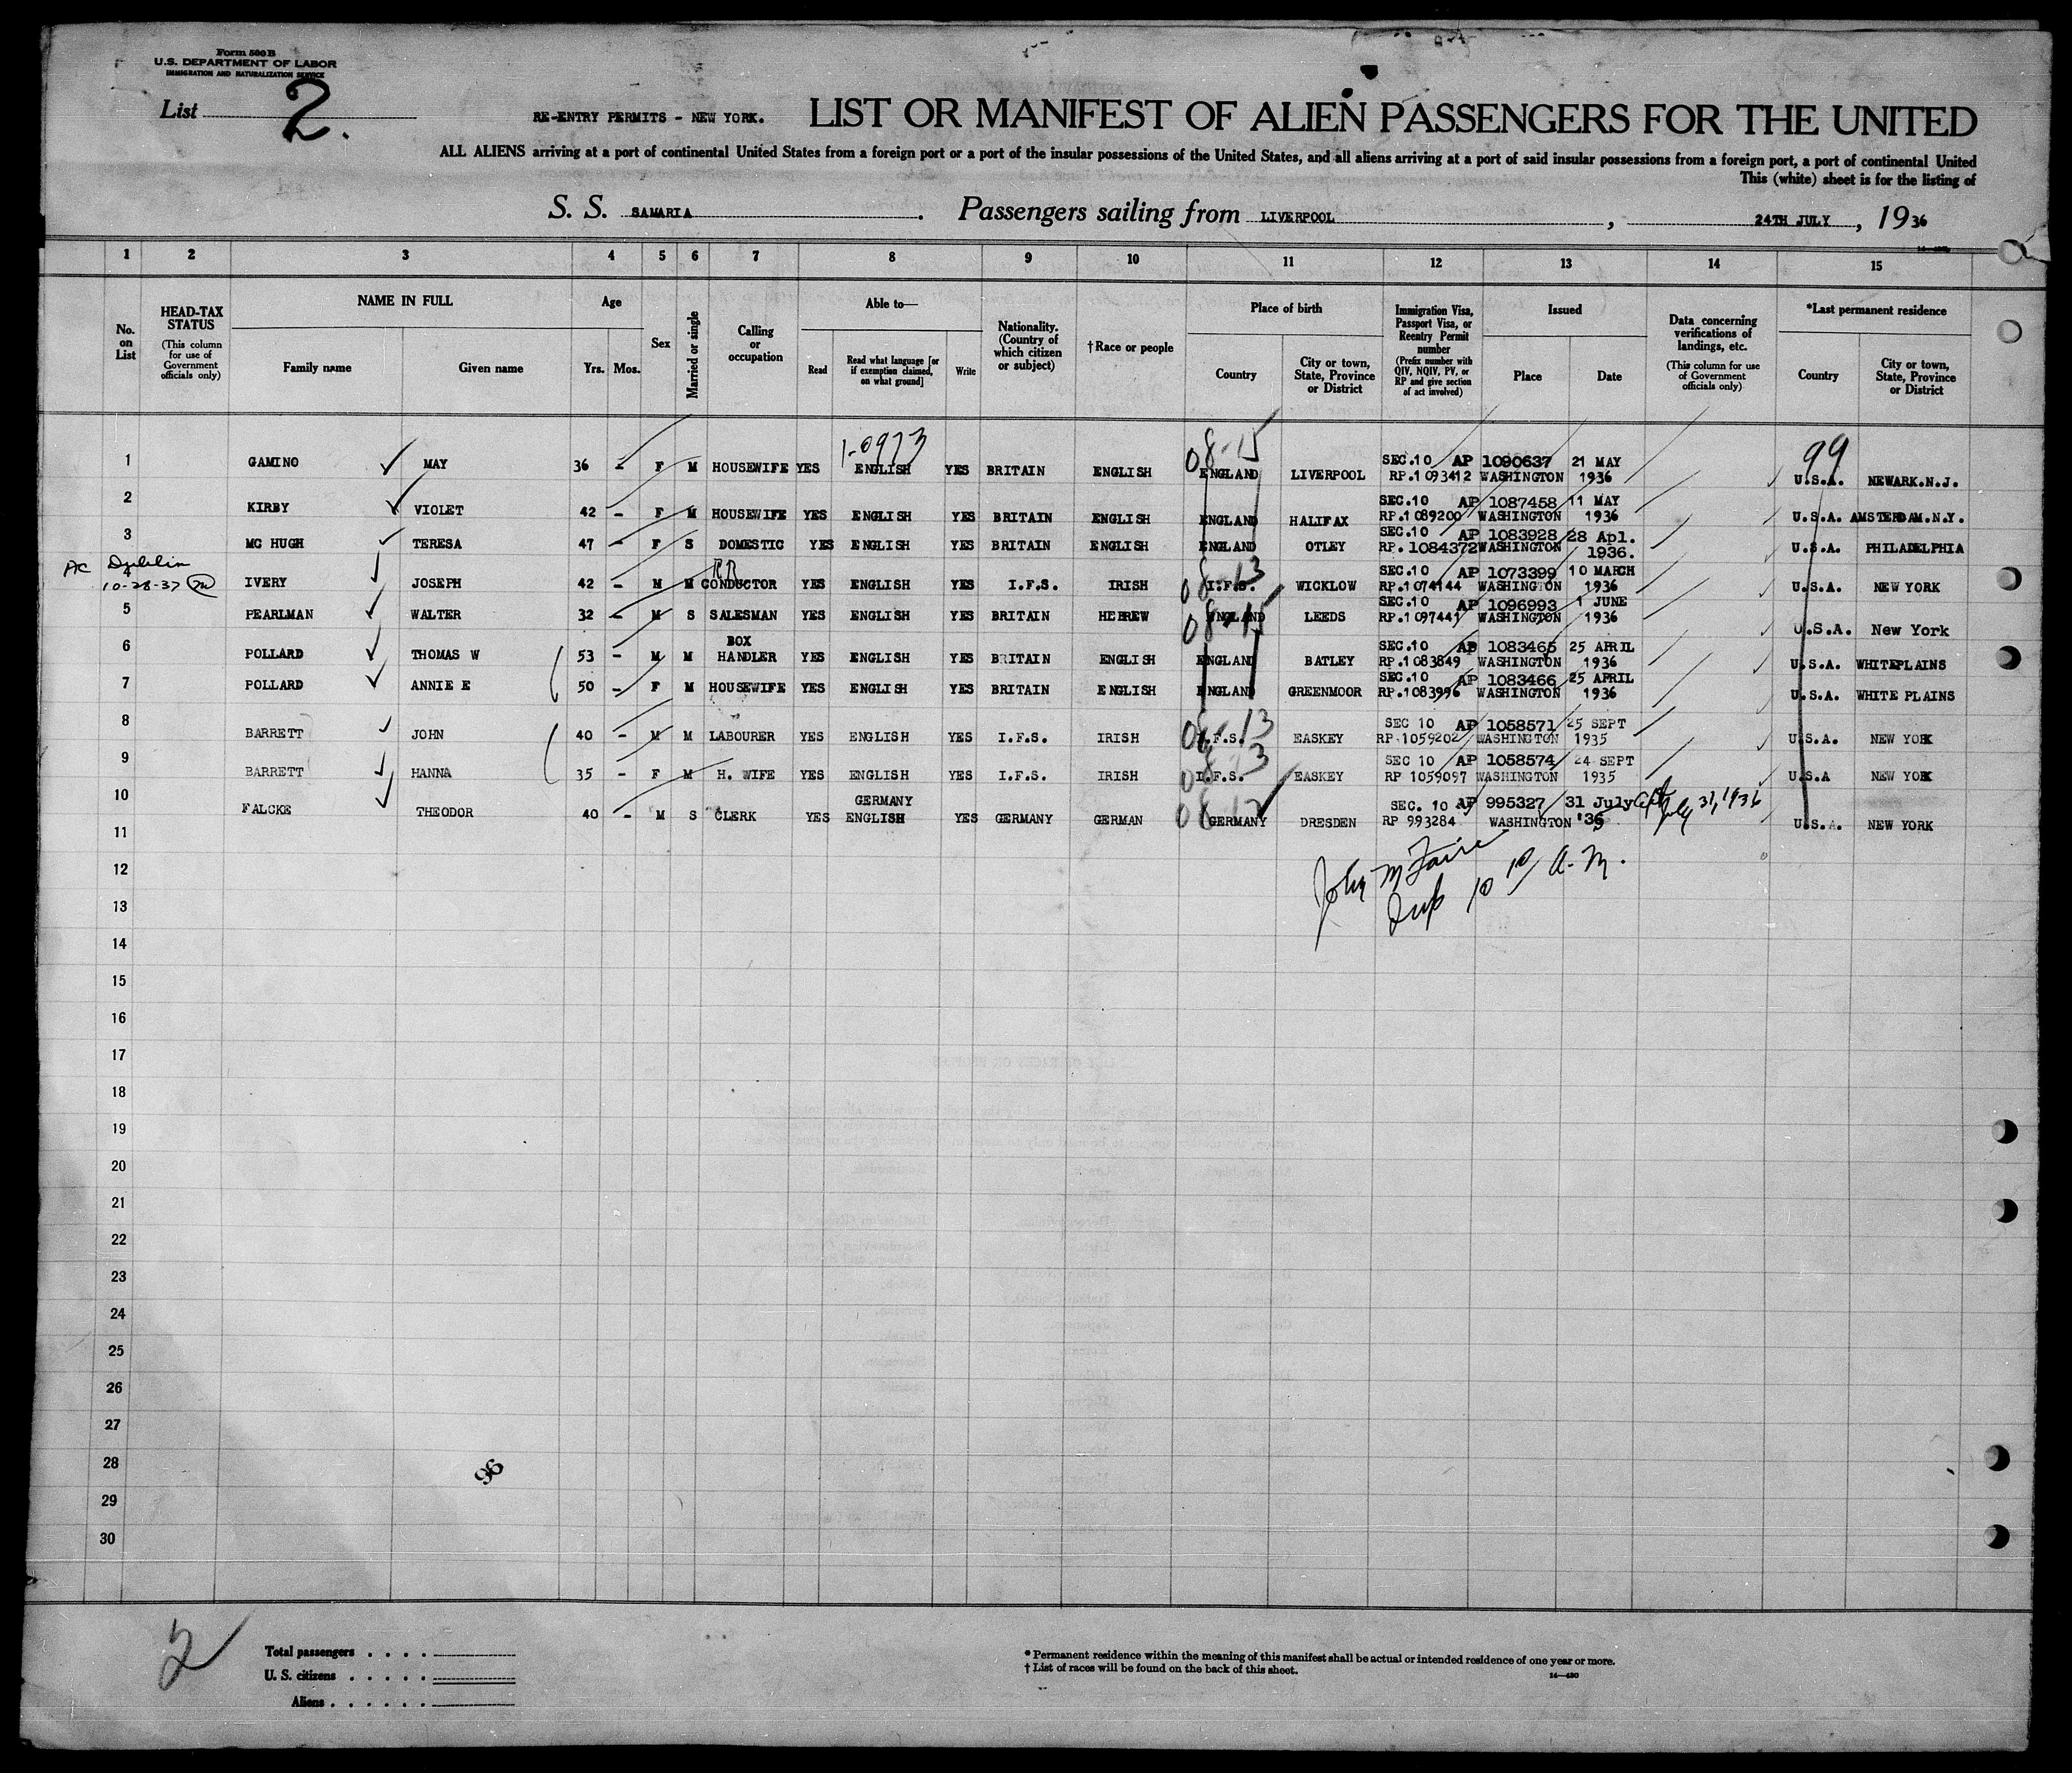 Form 500 B
U.S. DEPARTMENT OF LABOR
IMMIGRATION AND NATURALIZATION SERVICE
List 2.
RE-ENTRY PERMITS - NEW YORK.
LIST OR MANIFEST OF ALIEN PASSENGERS FOR THE UNITED
ALL ALIENS arriving at a port of continental United States from a foreign port or a port of the insular possessions of the United States, and all aliens arriving at a port of said insular possessions from a foreign port, a port of continental United
This (white) sheet is for the listing of
S. S. SAMARIA. Passengers sailing from LIVERPOOL, 24TH JULY, 1936
1 2 3 4 5 6 7 8 9 10 11 12 13 14 15
No. on List
HEAD-TAX STATUS (This column for use of Government officials only)
NAME IN FULL
Family name Given name
Age
Yrs. Mos.
Sex
Married or single
Calling or occupation
Able to—
Read Read what language [or if exemption claimed, on what ground] Write
Nationality. (Country of which citizen or subject)
†Race or people
Place of birth
Country City or town, State, Province or District
Immigration Visa, Passport Visa, or Reentry Permit number (Prefix number with QIV, NQIV, PV, or RP and give section of act involved)
Issued
Place Date
Data concerning verifications of landings, etc. (This column for use of Government officials only)
*Last permanent residence
Country City or town, State, Province or District
1-0973 08-15 99
1 GAMINO MAY 36 - F M HOUSEWIFE YES ENGLISH YES BRITAIN ENGLISH ENGLAND LIVERPOOL SEC.10 AP 1090637 RP.1093412 WASHINGTON 21 MAY 1936 U.S.A. NEWARK.N.J.
2 KIRBY VIOLET 42 - F M HOUSEWIFE YES ENGLISH YES BRITAIN ENGLISH ENGLAND HALIFAX SEC.10 AP 1087458 RP.1089200 WASHINGTON 11 MAY 1936 U.S.A. AMSTERDAM.N.Y.
3 MC HUGH TERESA 47 - F S DOMESTIC YES ENGLISH YES BRITAIN ENGLISH ENGLAND OTLEY SEC.10 AP 1083928 RP.1084372 WASHINGTON 28 Apl. 1936. U.S.A. PHILADELPHIA
AC Dublin
10-28-37 m
4 IVERY JOSEPH 42 - M M RR CONDUCTOR YES ENGLISH YES I.F.S. IRISH 08-13 I.F.S. WICKLOW SEC.10 AP 1073399 RP.1074144 WASHINGTON 10 MARCH 1936 U.S.A. NEW YORK
5 PEARLMAN WALTER 32 - M S SALESMAN YES ENGLISH YES BRITAIN HEBREW 08-15 ENGLAND LEEDS SEC.10 AP 1096993 RP.1097441 WASHINGTON 1 JUNE 1936 U.S.A. New York
6 POLLARD THOMAS W 53 - M M BOX HANDLER YES ENGLISH YES BRITAIN ENGLISH ENGLAND BATLEY SEC.10 AP 1083465 RP.1083849 WASHINGTON 25 APRIL 1936 U.S.A. WHITEPLAINS
7 POLLARD ANNIE E 50 - F M HOUSEWIFE YES ENGLISH YES BRITAIN ENGLISH ENGLAND GREENMOOR SEC.10 AP 1083466 RP.1083996 WASHINGTON 25 APRIL 1936 U.S.A. WHITE PLAINS
8 BARRETT JOHN 40 - M M LABOURER YES ENGLISH YES I.F.S. IRISH 08-13 I.F.S. EASKEY SEC 10 AP 1058571 RP 1059202 WASHINGTON 25 SEPT 1935 U.S.A. NEW YORK
9 BARRETT HANNA 35 - F M H. WIFE YES ENGLISH YES I.F.S. IRISH I.F.S. EASKEY SEC 10 AP 1058574 RP 1059097 WASHINGTON 24 SEPT 1935 U.S.A NEW YORK
10 FALCKE THEODOR 40 - M S CLERK YES GERMANY ENGLISH YES GERMANY GERMAN GERMANY DRESDEN SEC. 10 AP 995327 RP 993284 WASHINGTON 31 July '36 July 31, 1936 U.S.A. NEW YORK
11
12
13
14
15
16
17
18
19
20
21
22
23
24
25
26
27
28
29
30
96
2
Total passengers
U. S. citizens
Aliens
* Permanent residence within the meaning of this manifest shall be actual or intended residence of one year or more.
† List of races will be found on the back of this sheet.
14—480